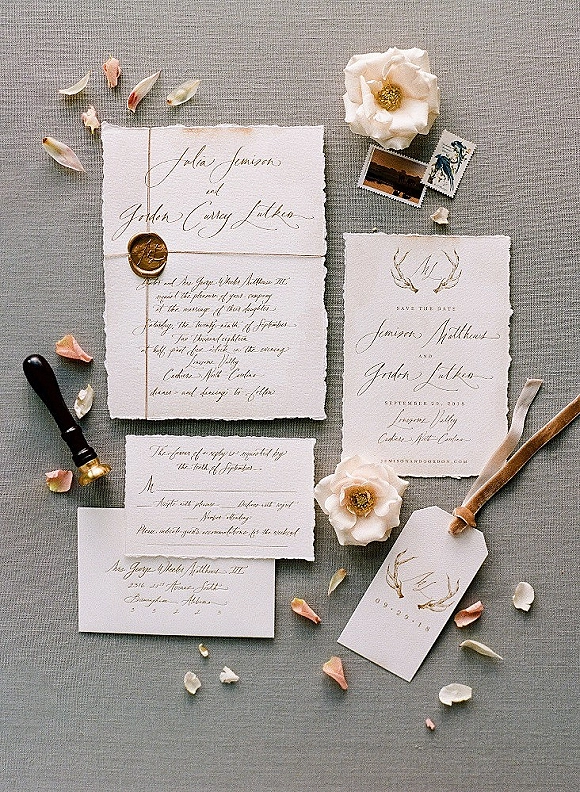 Julia Jemison
and
Gordon Currey Lutken
and Mrs. George Wheeler Matthews III
request the pleasure of your company
at the marriage of their daughter
Saturday, the twenty-ninth of September
two thousand eighteen
at half past five o'clock in the evening
Lonesome Valley
Cashiers, North Carolina
dinner and dancing to follow
SAVE THE DATE
Jemison Matthews
AND
Gordon Lutken
SEPTEMBER 29, 2018
Lonesome Valley
Cashiers, North Carolina
JEMISONANDGORDON.COM
The favour of a reply is requested by
the tenth of September
M
Accepts with pleasure Declines with regret
Number attending
Please indicate guest accommodations for the weekend
Mrs. George Wheeler Matthews III
Avenue South
Birmingham, Alabama
09·29·18